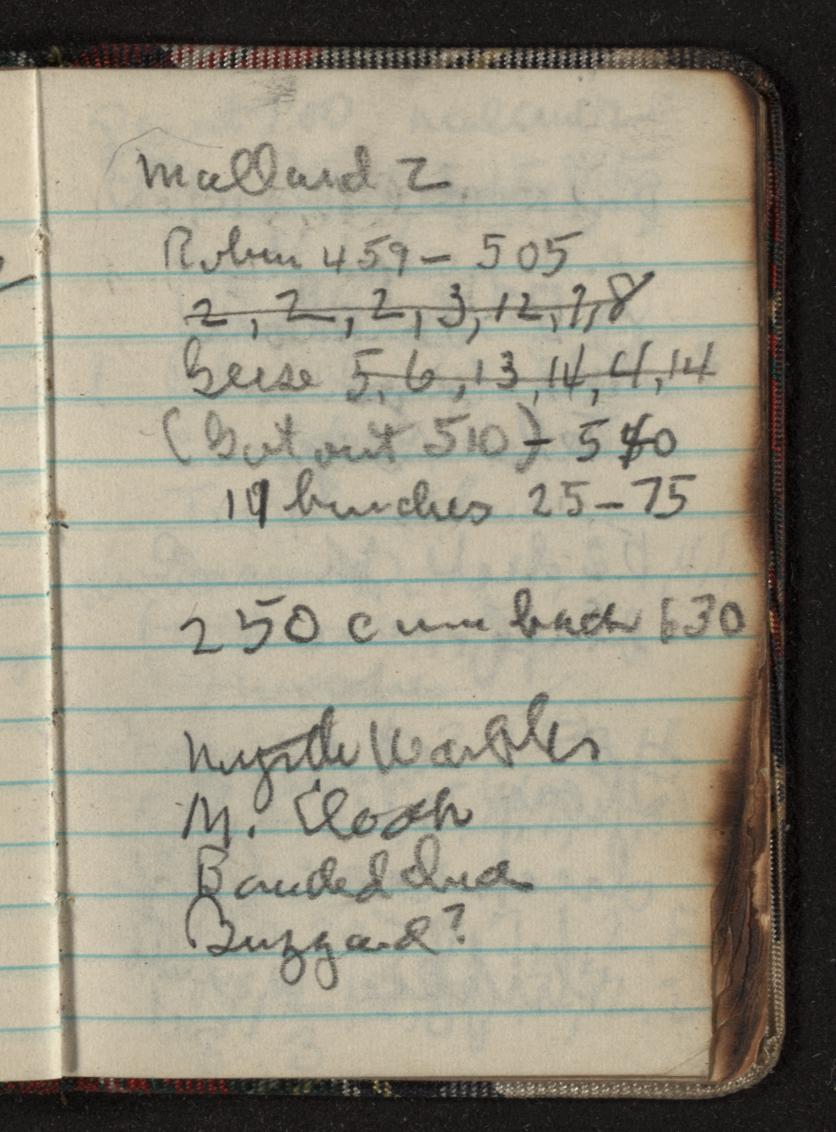 Mallard 2
Robin 459 - 505
2, 2, 2, 3, 12, 7, 8
Geese 5, 6, 13, 14, 4, 14
(Got out 510) - 540
19 bunches 25-75
250 came back 630
Myrtle Warbler
M. Cloak
Banded
Buzzard?